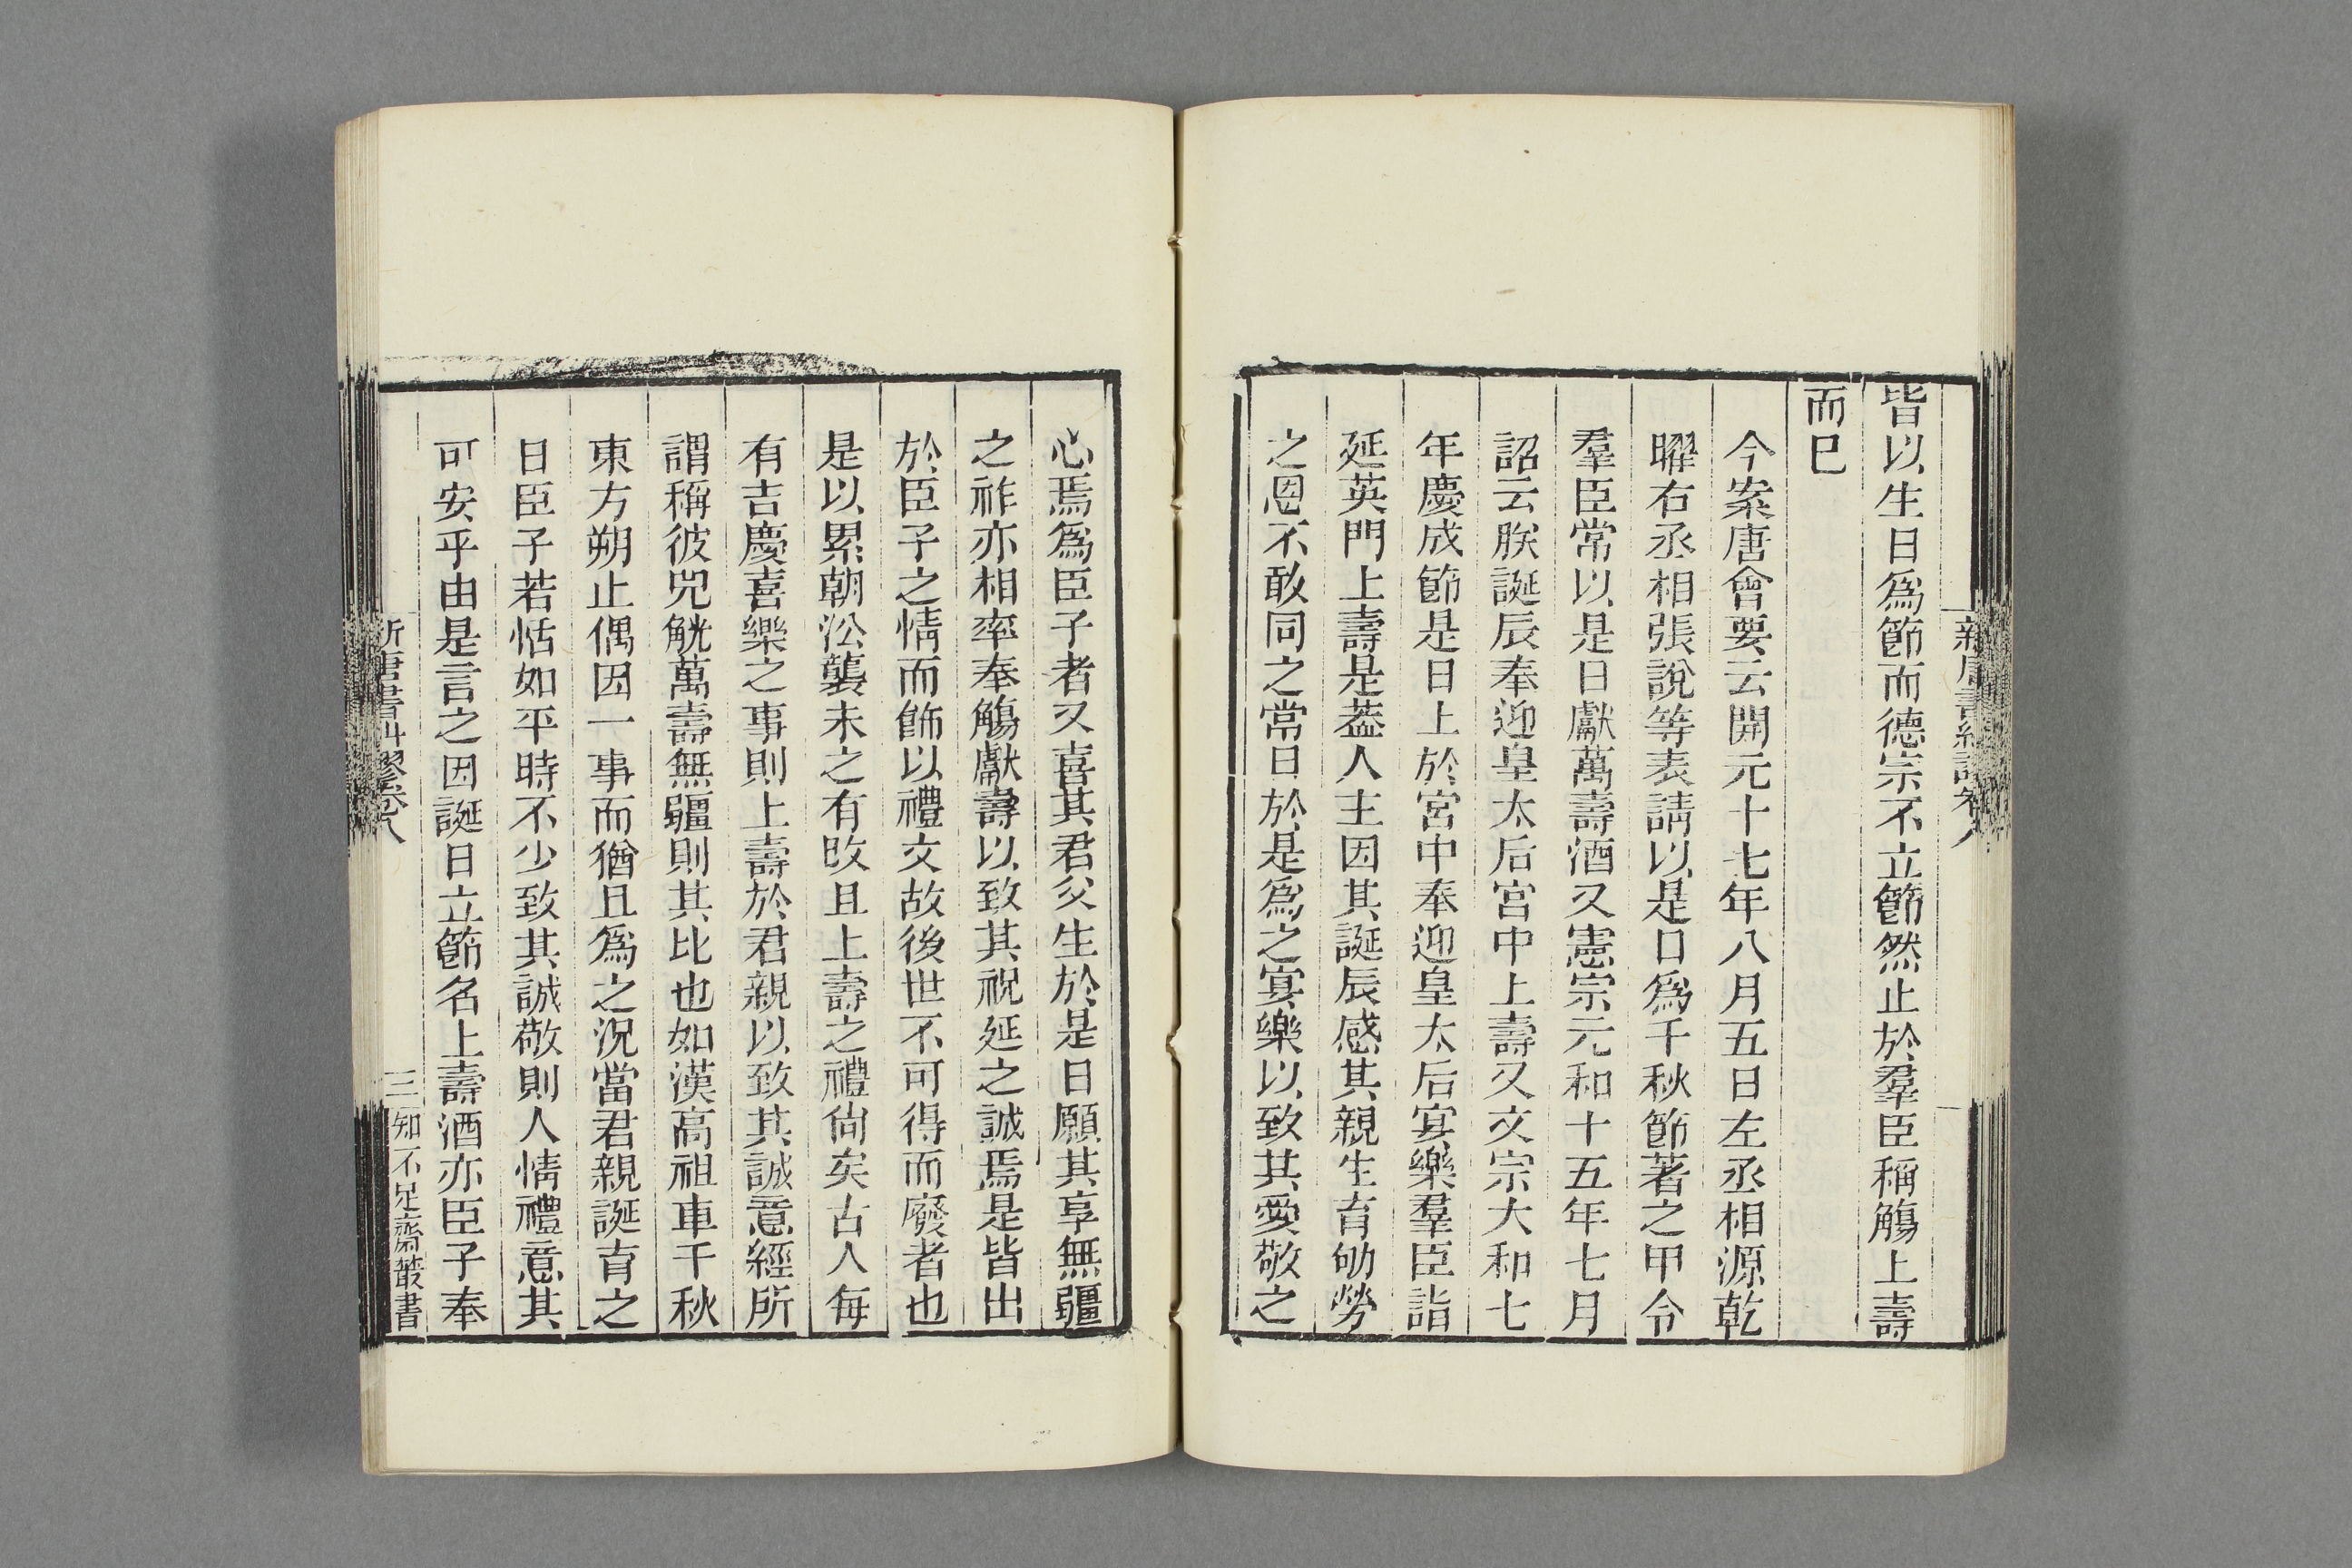 皆以生日爲節而德宗不立節然止於羣臣稱觴上壽
而巳
今案唐會要云開元十七年八月五日左丞相源乾
曜右丞相張說等表請以是日爲千秋節著之甲令
羣臣常以是日獻萬壽酒又憲宗元和十五年七月
詔云朕誕辰奉迎皇太后宮中上壽又文宗大和七
年慶成節是日上於宮中奉迎皇太后宴樂羣臣詣
延英門上壽是葢人主因其誕辰感其親生育劬勞
之恩不敢同之常日於是爲之宴樂以致其愛敬之
心焉爲臣子者又喜其君父生於是日願其享無疆
之祚亦相率奉觴獻壽以致其祝延之誠焉是皆出
於臣子之情而飾以禮文故後世不可得而廢者也
是以累朝㳂襲未之有攺且上壽之禮尙矣古人每
有吉慶喜樂之事則上壽於君親以致其誠意經所
謂稱彼兕觥萬壽無疆則其比也如漢高祖車千秋
東方朔止偶因一事而猶且爲之況當君親誕育之
日臣子若恬如平時不少致其誠敬則人情禮意其
可安乎由是言之因誕日立節名上壽酒亦臣子奉
新唐書糾繆卷八
三
知不足齋叢書